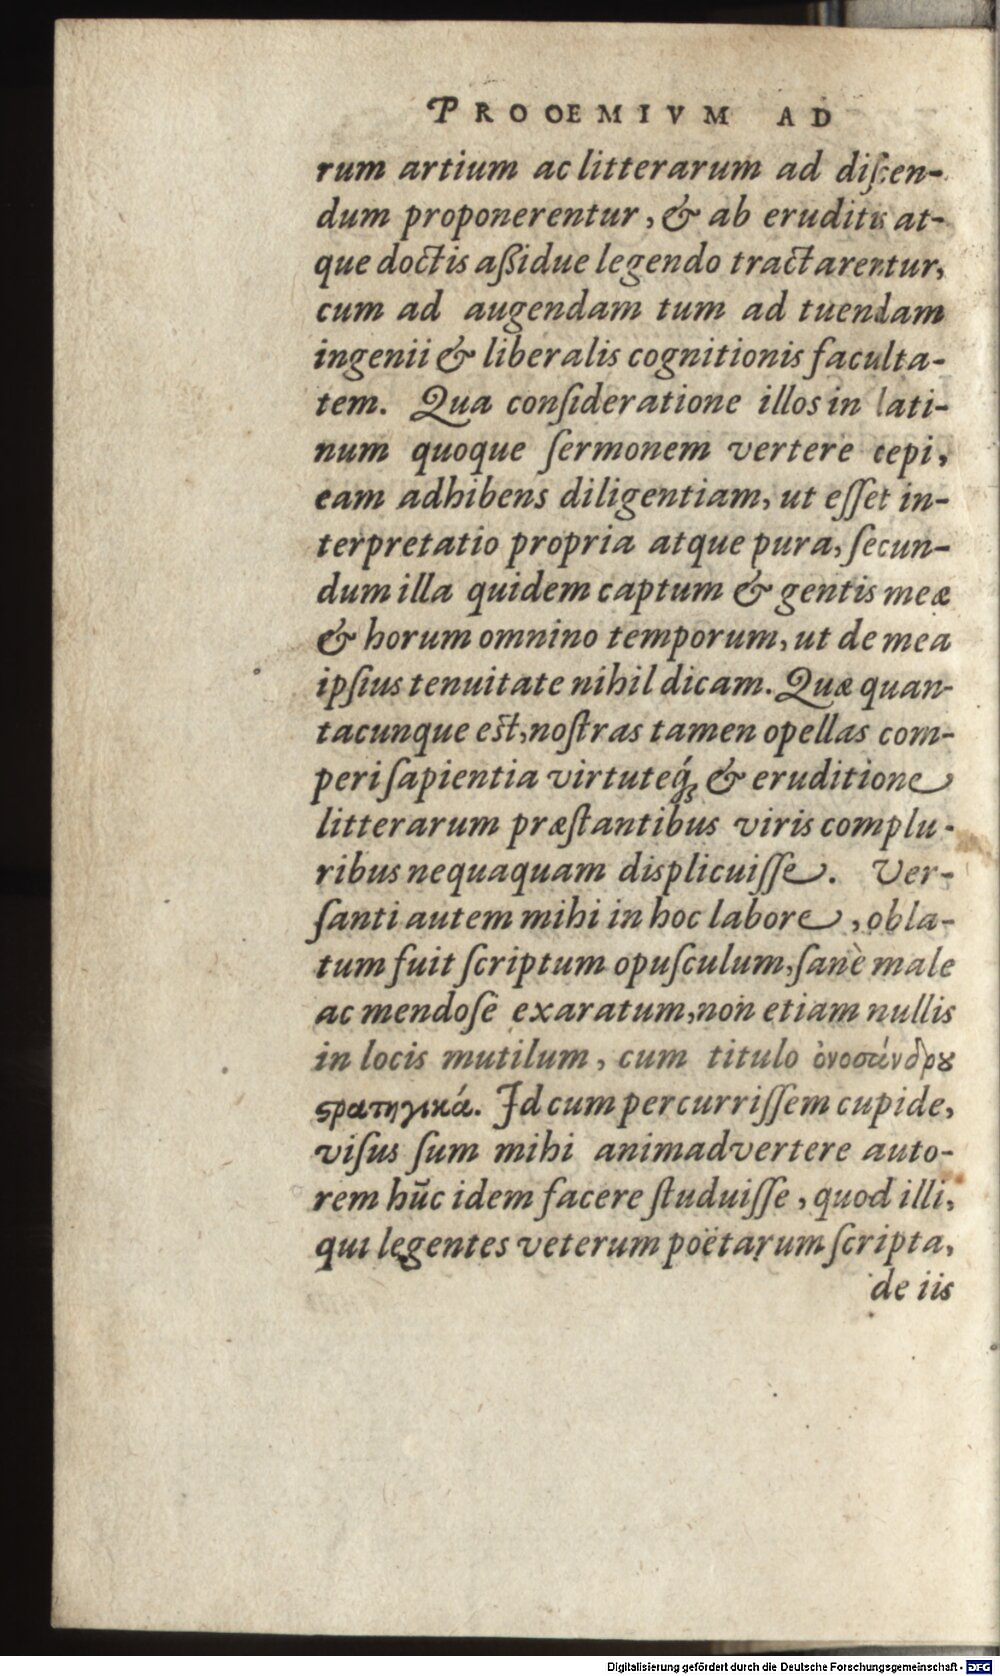 PROOEMIVM AD
rum artium ac litterarum ad diſcen-
dum proponerentur, & ab eruditis at-
que doctis aßidue legendo tractarentur,
cum ad augendam tum ad tuendam
ingenii & liberalis cognitionis faculta-
tem. Qua conſideratione illos in lati-
num quoque ſermonem vertere cepi,
eam adhibens diligentiam, ut eſſet in-
terpretatio propria atque pura, ſecun-
dum illa quidem captum & gentis meæ
& horum omnino temporum, ut de mea
ipſius tenuitate nihil dicam. Quæ quan-
tacunque est, noſtras tamen opellas com-
peri ſapientia virtuteq́ꝫ & eruditione
litterarum præſtantibus viris complu-
ribus nequaquam displicuiſſe. Ver-
ſanti autem mihi in hoc labore, obla-
tum fuit ſcriptum opuſculum, ſanè male
ac mendoſe exaratum, non etiam nullis
in locis mutilum, cum titulo ὀνοσάνδρου
ϛρατηγικά. Id cum percurriſſem cupide,
viſus ſum mihi animadvertere auto-
rem hūc idem facere ſtuduiſſe, quod illi,
qui legentes veterum poëtarum ſcripta,
de iis
Digitalisierung gefördert durch die Deutsche Forschungsgemeinschaft - DFG